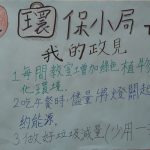 環保小局
我的政見
1每間教室增加綠色植物
化環境
2吃午餐時,儘量將燈關起
約能源
3做好垃圾減量(少用一